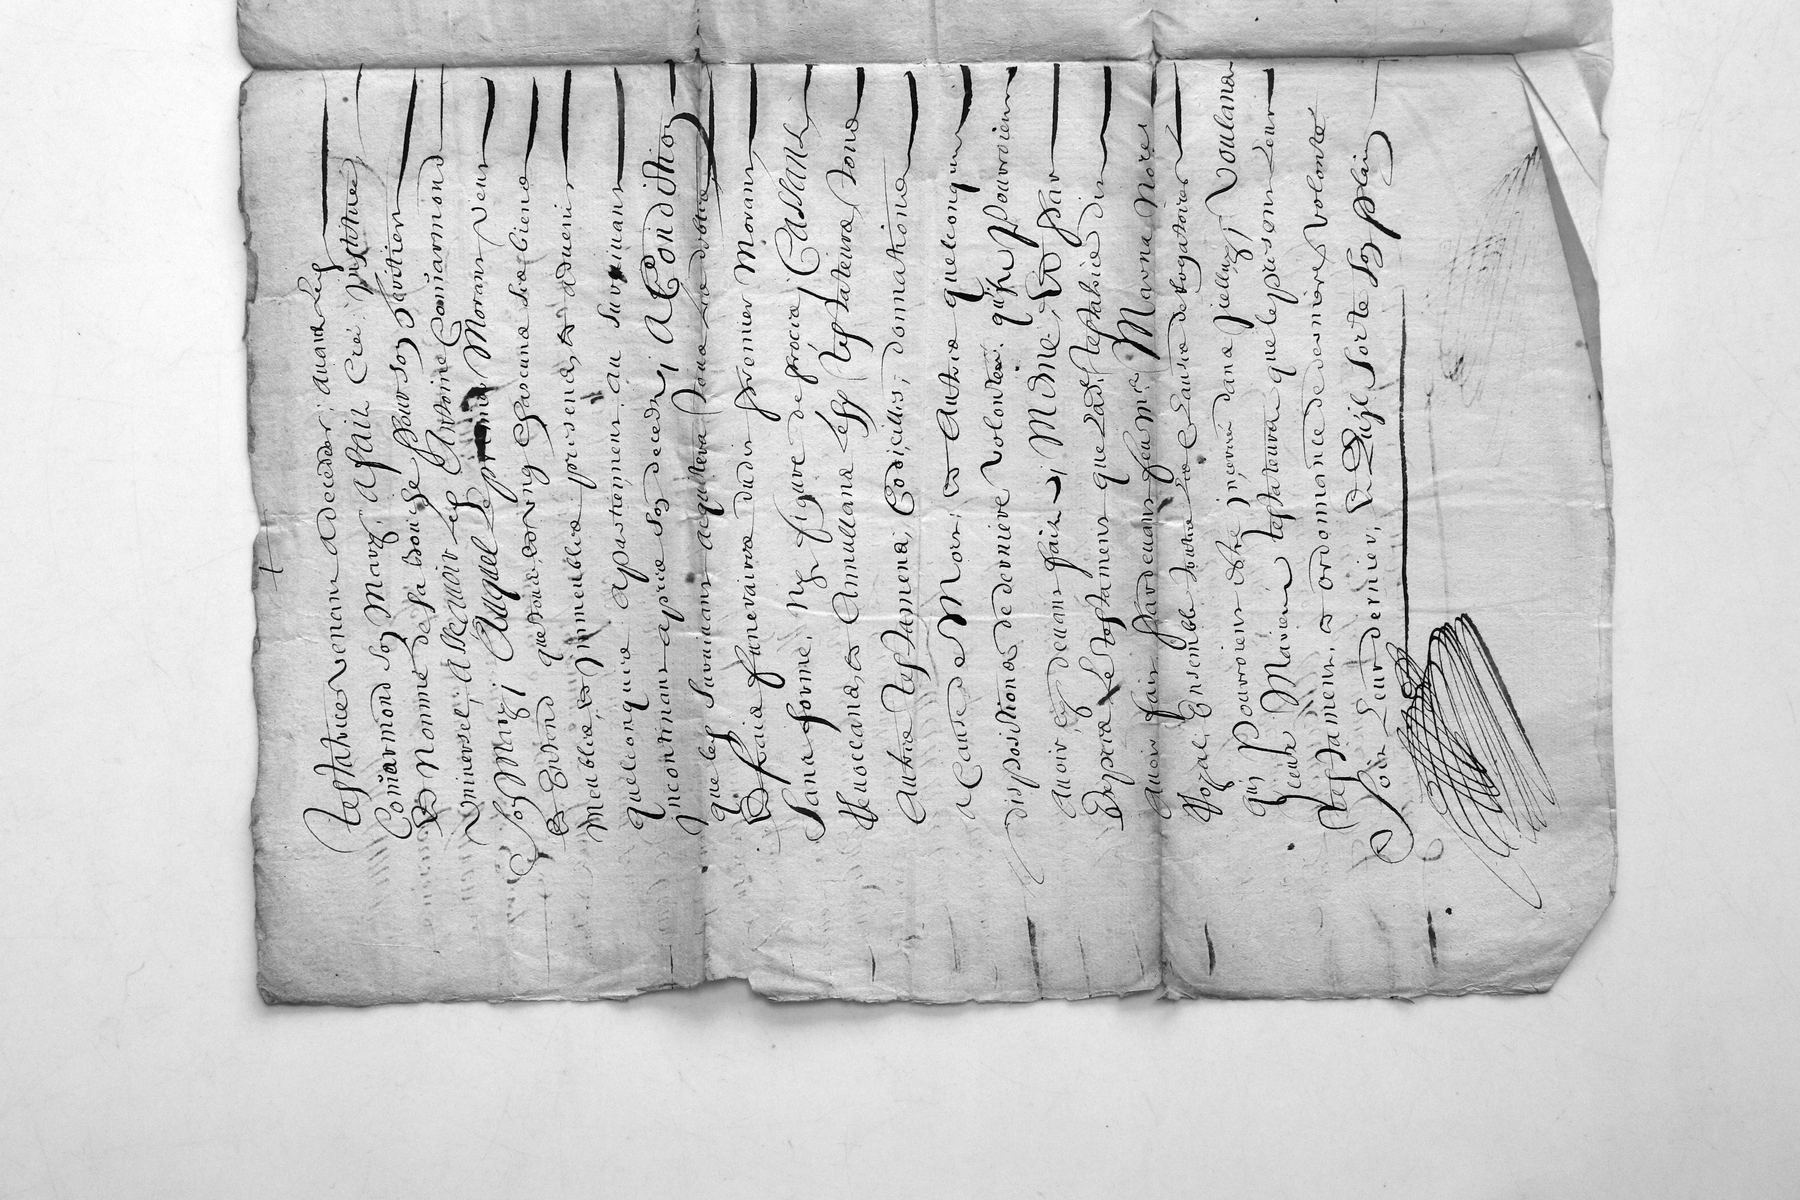 Testatrice venant a deceder, avant les
Comarmond son Mary, a faict Cree Institue
Et Nommé de sa bouche pour son heritier
Universel, Ascavoir les Antoine Comarmond
Son Mary, Auquel le premier Mourant veut
Et Entend que tous et ung chacuns ses biens
Meubles, et Immeubles presens, et advenir
quelconques apartiennent au survivant
Incontinant apres son deceds, A Condition
que les survivant acquitera tous ses debtes
Et fraix funeraires dudit premier Mourant
Sans forme, Ny figure de proces, Cassant
Revoccans, et Annullans lesd Testateurs tous
Autres Testamens, Codicilles, donnations
a Cause de Mort, et Autres quelconques
dispositions de derniere volonté qu'ils pourroient
Avoir cy devant faict, Mesme Et par
Expres Le Testament que Lad. Testatrice dit
Avoir fait pardevant feu Me Mavrna Nore
Royal, Ensemble toutes les Clauses derogatoires
qui Pourroient estre inserees dans jcelluy, Voulans
Jceux Mariés Testateurs que le present Leur
Testament, et ordonnance de derniere volonté
Soit Leur dernier, Et Qu'il Sorte Son plain